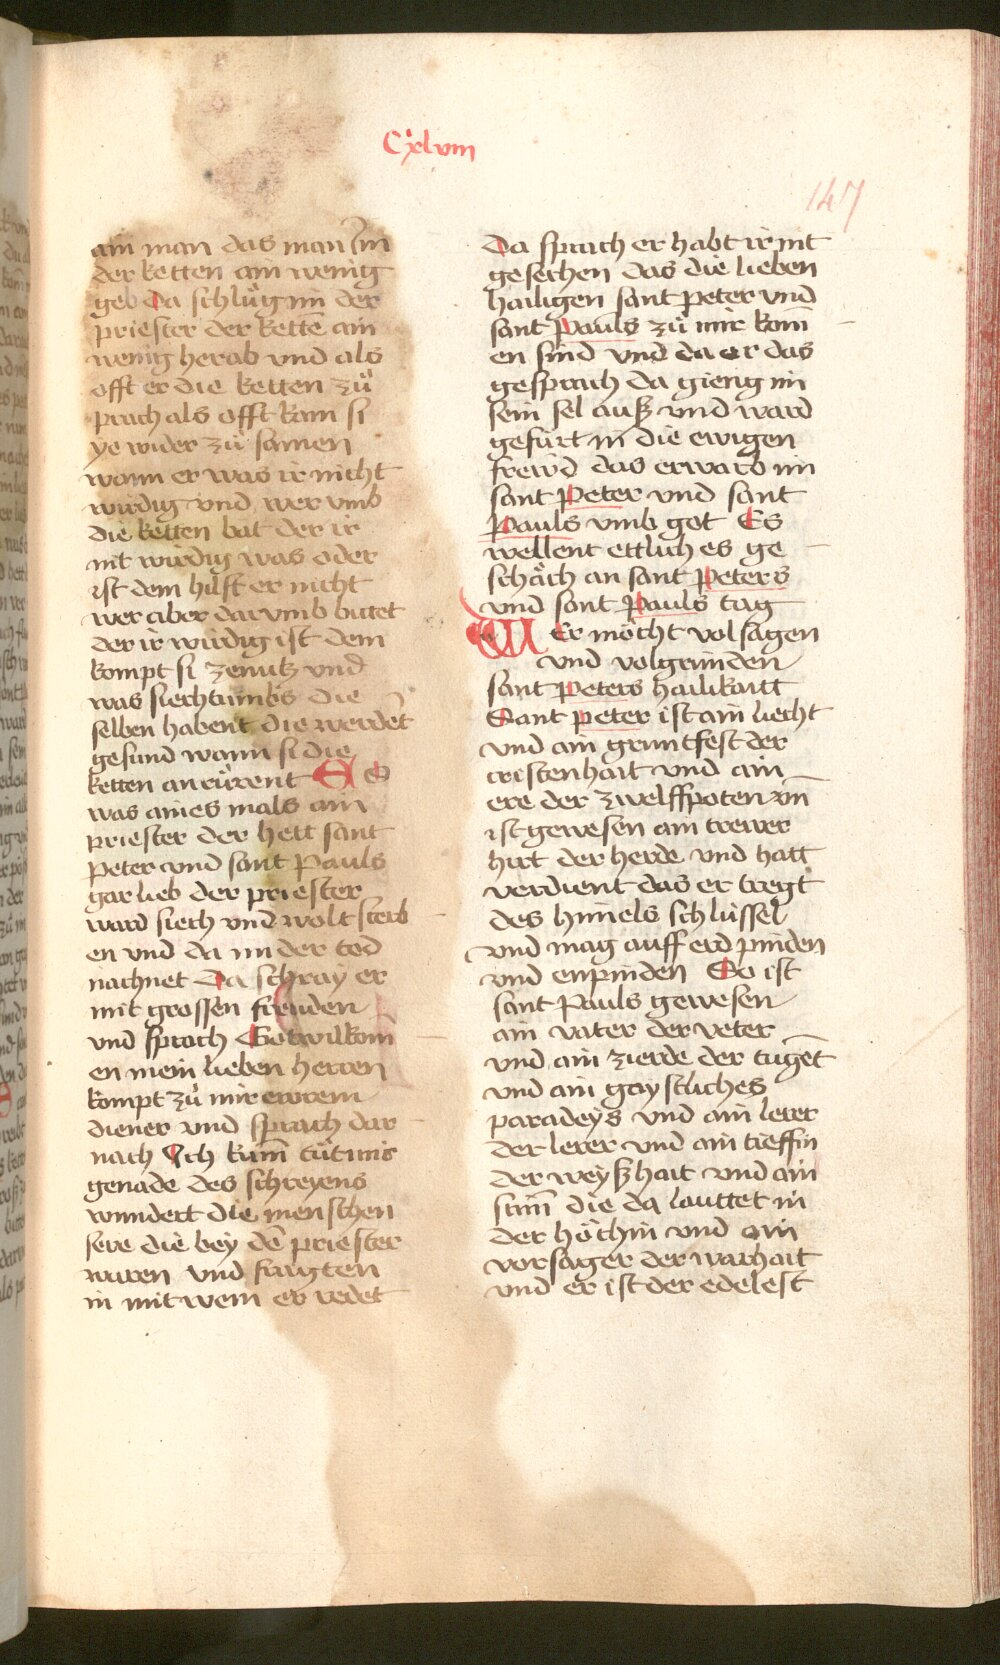 Cxlviii
147
ain man das man Im
der ketten ain wenig
geb Da schlůg im der
priester der kettē ain
wenig herab vnd als
offt er die ketten zů
prach als offt kam si
ye wider zů samen
wann er was ir nicht
wirdig vnd wer vmb
die ketten bat der ir
nit wirdig was oder
ist dem hilft er nicht
wer aber darvmb bittet
der ir wirdig ist dem
kompt si ze nutz vnd
was siechtumbs die
selben habent die werdēt
gesund wann si die
ketten an rürent Es
was aines mals ain
priester der hett sant
Peter vnd sant Pauls
gar lieb der priester
ward siech vnd wolt sterb
en vnd da im der tod
nachnet Da schray er
mit grossen freuden
vnd sprach Gotwilkom̄
en mein lieben herren
kompt zů mir ewrem
diener vnd sprach dar
nach Ich kum̄ tůt mir
genade des schreyens
wundert die menschen
sere die bey dē priester
waren vnd fragten
in mit wem er redet
Da sprach er habt ir nit
gesechen das die lieben
hailigen sant Peter vnd
sant Pauls zů mir kom̄
en sind vnd da er das
gesprach da gieng im
sein sel auß vnd ward
gefürt in die ewigen
frewd das erwarb im
sant Peter vnd sant
Pauls vmb got Es
wellent ettlich es ge
schäch an sant Peters
vnd sant Pauls tag
WEr möcht volsagen
vnd volgrunden
sant Peters hailikaitt
Sant Peter ist ain liecht
vnd ain gruntfest der
cristenhait vnd ain
ere der zwelffpoten vn̄
ist gewesen ain trewer
hirt der herde vnd hatt
verdient das er tregt
des himels schlüssel
vnd mag auff erd pinden
vnd enpinden So ist
sant Pauls gewesen
ain vater der veter
vnd ain zierde der tugēt
vnd ain gaystliches
paradeys vnd ain lerer
der lerer vnd ain tieffin
der weyßhait vnd ain
stim̄ die da lauttet in
der höchin vnd ain
vorsager der warhait
vnd er ist der edelest